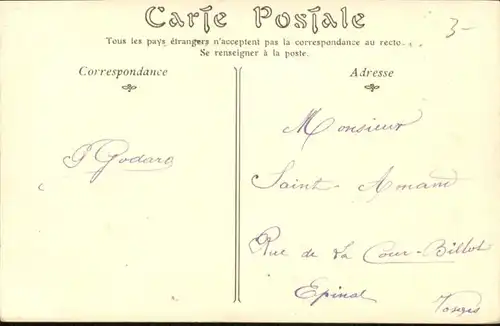 Carte Postale
3-
Tous les pays étrangers n'acceptent pas la correspondance au recto.
Se renseigner à la poste.
Correspondance
Adresse
Godard
Monsieur
Saint-Amand
Rue de La Cour-Billot
Epinal
Vosges